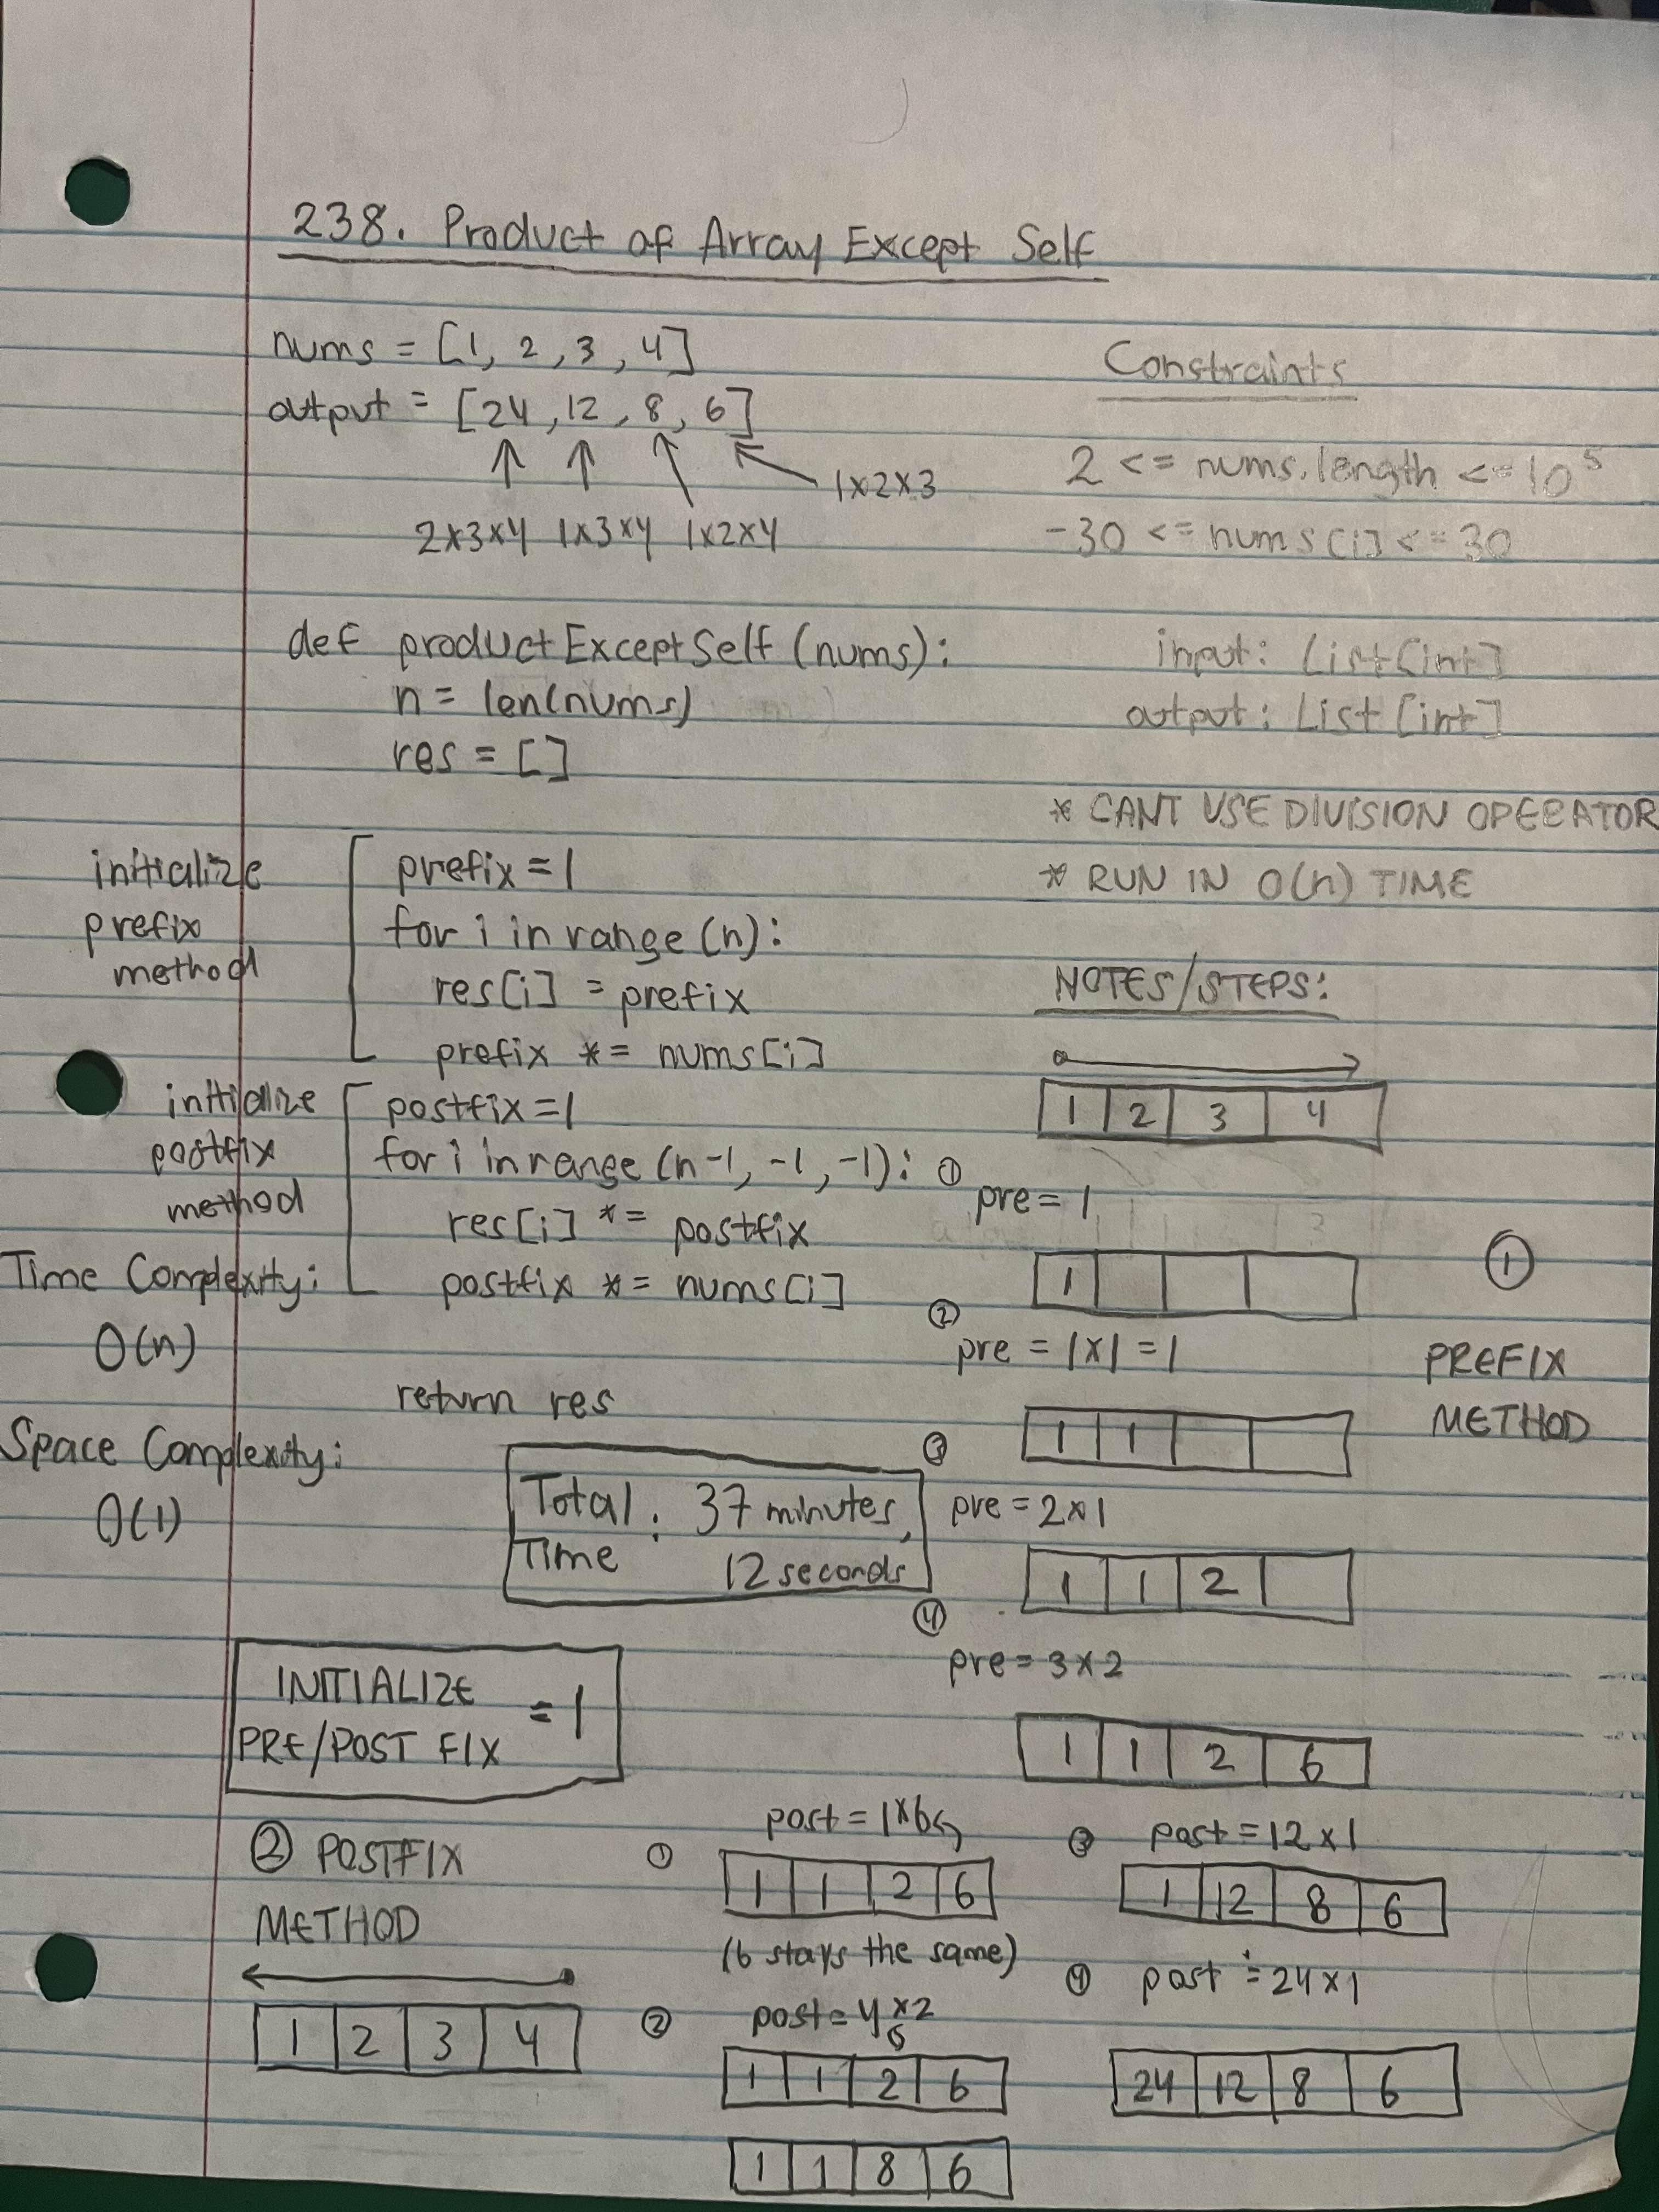 238. Product of Array Except Self
nums = [1, 2, 3, 4]
output = [24, 12, 8, 6]
1x2x3
2x3x4 1x3x4 1x2x4
Constraints
2 <= nums.length <= 10⁵
-30 <= nums[i] <= 30
def productExceptSelf (nums):
n = len(nums)
res = []
input: List[int]
output: List[int]
* CANT USE DIVISION OPERATOR
* RUN IN O(n) TIME
initialize
prefix
method
prefix = 1
for i in range (n):
res[i] = prefix
prefix *= nums[i]
initialize
postfix
method
postfix = 1
for i in range (n-1, -1, -1):
res[i] *= postfix
postfix *= nums[i]
return res
Time Complexity:
O(n)
Space Complexity:
O(1)
Total : 37 minutes,
Time 12 seconds
INITIALIZE
PRE/POST FIX = 1
NOTES/STEPS:
1 2 3 4
① PREFIX
METHOD
① pre = 1
1
② pre = 1x1 = 1
1 1
③ pre = 2x1
1 1 2
④ pre = 3x2
1 1 2 6
② POSTFIX
METHOD
1 2 3 4
① post = 1x6
1 1 2 6
(6 stays the same)
② post = 4x2
1 1 2 6
1 1 8 6
③ post = 12x1
1 12 8 6
④ post = 24x1
24 12 8 6